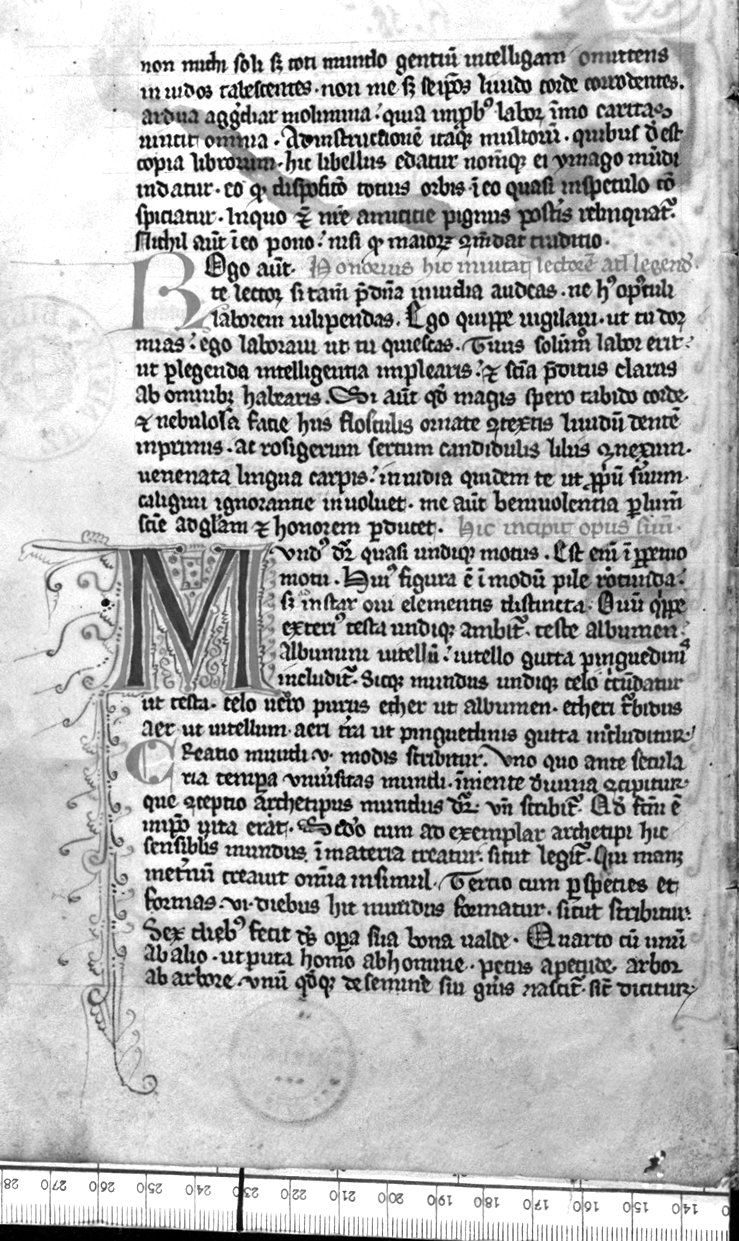 non michi soli sꝫ toti mundo gentiū intelligam omittens
inuidos tabescentes · non me sꝫ seip̄os liuido corde corrodentes.
ardua agg̃diar molimina : quia imp̱bꝰ labor īmo caritas
uincit omnia · Ad instructionē itaqꝫ multorū · quibus d̄ est
copia librorum · hic libellus edatur nom̄qꝫ ei ymago mūdi
indatur · eo qꝫ dispositō totius orbis ī eo quasi in speculo cō
spiciatur · In quo ⁊ nr̄e amicitie pignus post̄is relinquat᷑.
Nichil aūt ī eo pono : nisi qꝫ maioꝝ cōm̄dat traditio.
Rogo aūt. Honorius hic inuitat lectorē ad legend᷑.
te lector si tam̄ p̄dn̄a inuidia audeas · ne hꝰ opusculi
laborem uilipendas. Ego quippe uigilaui · ut tu dor
mias : ego laboraui ut tu quiescas. Tuus solūm̊ labor erit :
ut ꝑlegenda intelligentia implearis : ⁊ sc̄ia p̄ditus clarus
ab omnibꝫ habearis. Si aūt qd̊ magis spero tabido corde
⁊ nebulosa facie hiis flosculis ornate ꝯtextis liuidū dentē
inprimis · ac rosigerum sertum candidulis liliis ꝯnexum ·
uenenata lingua carpis : inuidia quidem te ut ꝓp̄ū suum
caligini ignorantie inuoluet · me aūt beniuolentia ꝑ lum̄
sc̄ie ad gl̄am ⁊ honorem ꝑducet. Hic incipit opus suū.
Mundꝰ dr̄ quasi undiqꝫ motus. Est enī ī ꝑpetuo
motu. Huiꝰ figura ē ī modū pile rotunda :
sꝫ īnstar oui elementis distincta. Ouū q̄ppe
exteriꝰ testa undiqꝫ ambit᷑ · teste albumen :
Albumini uitellū : uitello gutta pinguedinis
includit᷑. Sicqꝫ mundus undiqꝫ celo circūdatur
ut testa · celo uero purus ether ut albumen · etheri t᷑bidus
aer ut uitellum · aeri t̄ra ut pinguedinis gutta includitur.
Creatio mundi ·v· modis scribitur. Vno quo ante secula
ria tempa vniu̓sitas mundi · ī mente diuina ꝯcipitur
que ꝯceptio archetipus mundus dr̄ · vn̄ scribit᷑. Qd̊ fc̄m ē
in ip̄o uita erat. Scd̊o cum ad exemplar archetipi hic
sensiblis mundus ī materia creatur · sicut legit᷑. Qui manꝫ
inet᷑nū creauit om̄ia insimul. Tertio cum ꝑ species et
formas ·vi· diebus hic mundus formatur · sicut scribitur.
Sex diebꝰ fecit dš opera sua bona ualde. Quarto cū unū
ab alio · ut puta homo ab homine · pecus a pecude · arbor
ab arbore · vnū qd̊qꝫ de semine sui gn̄is nascit᷑ · sic̄ dicitur